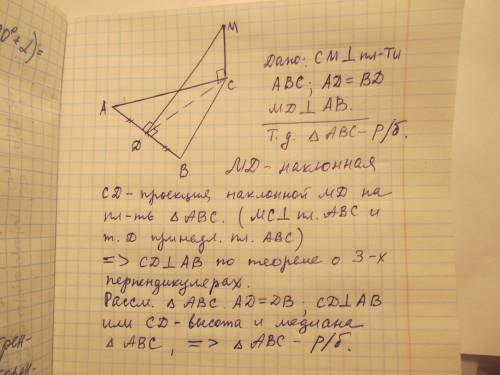 0°+2)=
M
C
A
D
B
Дано: CM⊥пл-ти
ABC; AD=BD
MD⊥AB.
Т.д. △ABC-р/б.
MD-наклонная
CD-проекция наклонной MD на
пл-ть △ABC. (MC⊥пл. ABC и
т. D принадл. пл. ABC)
=> CD⊥AB по теореме о 3-х
перпендикулерах.
Рассм. △ABC. AD=DB; CD⊥AB
или CD-высота и медиана
△ABC, => △ABC-р/б.